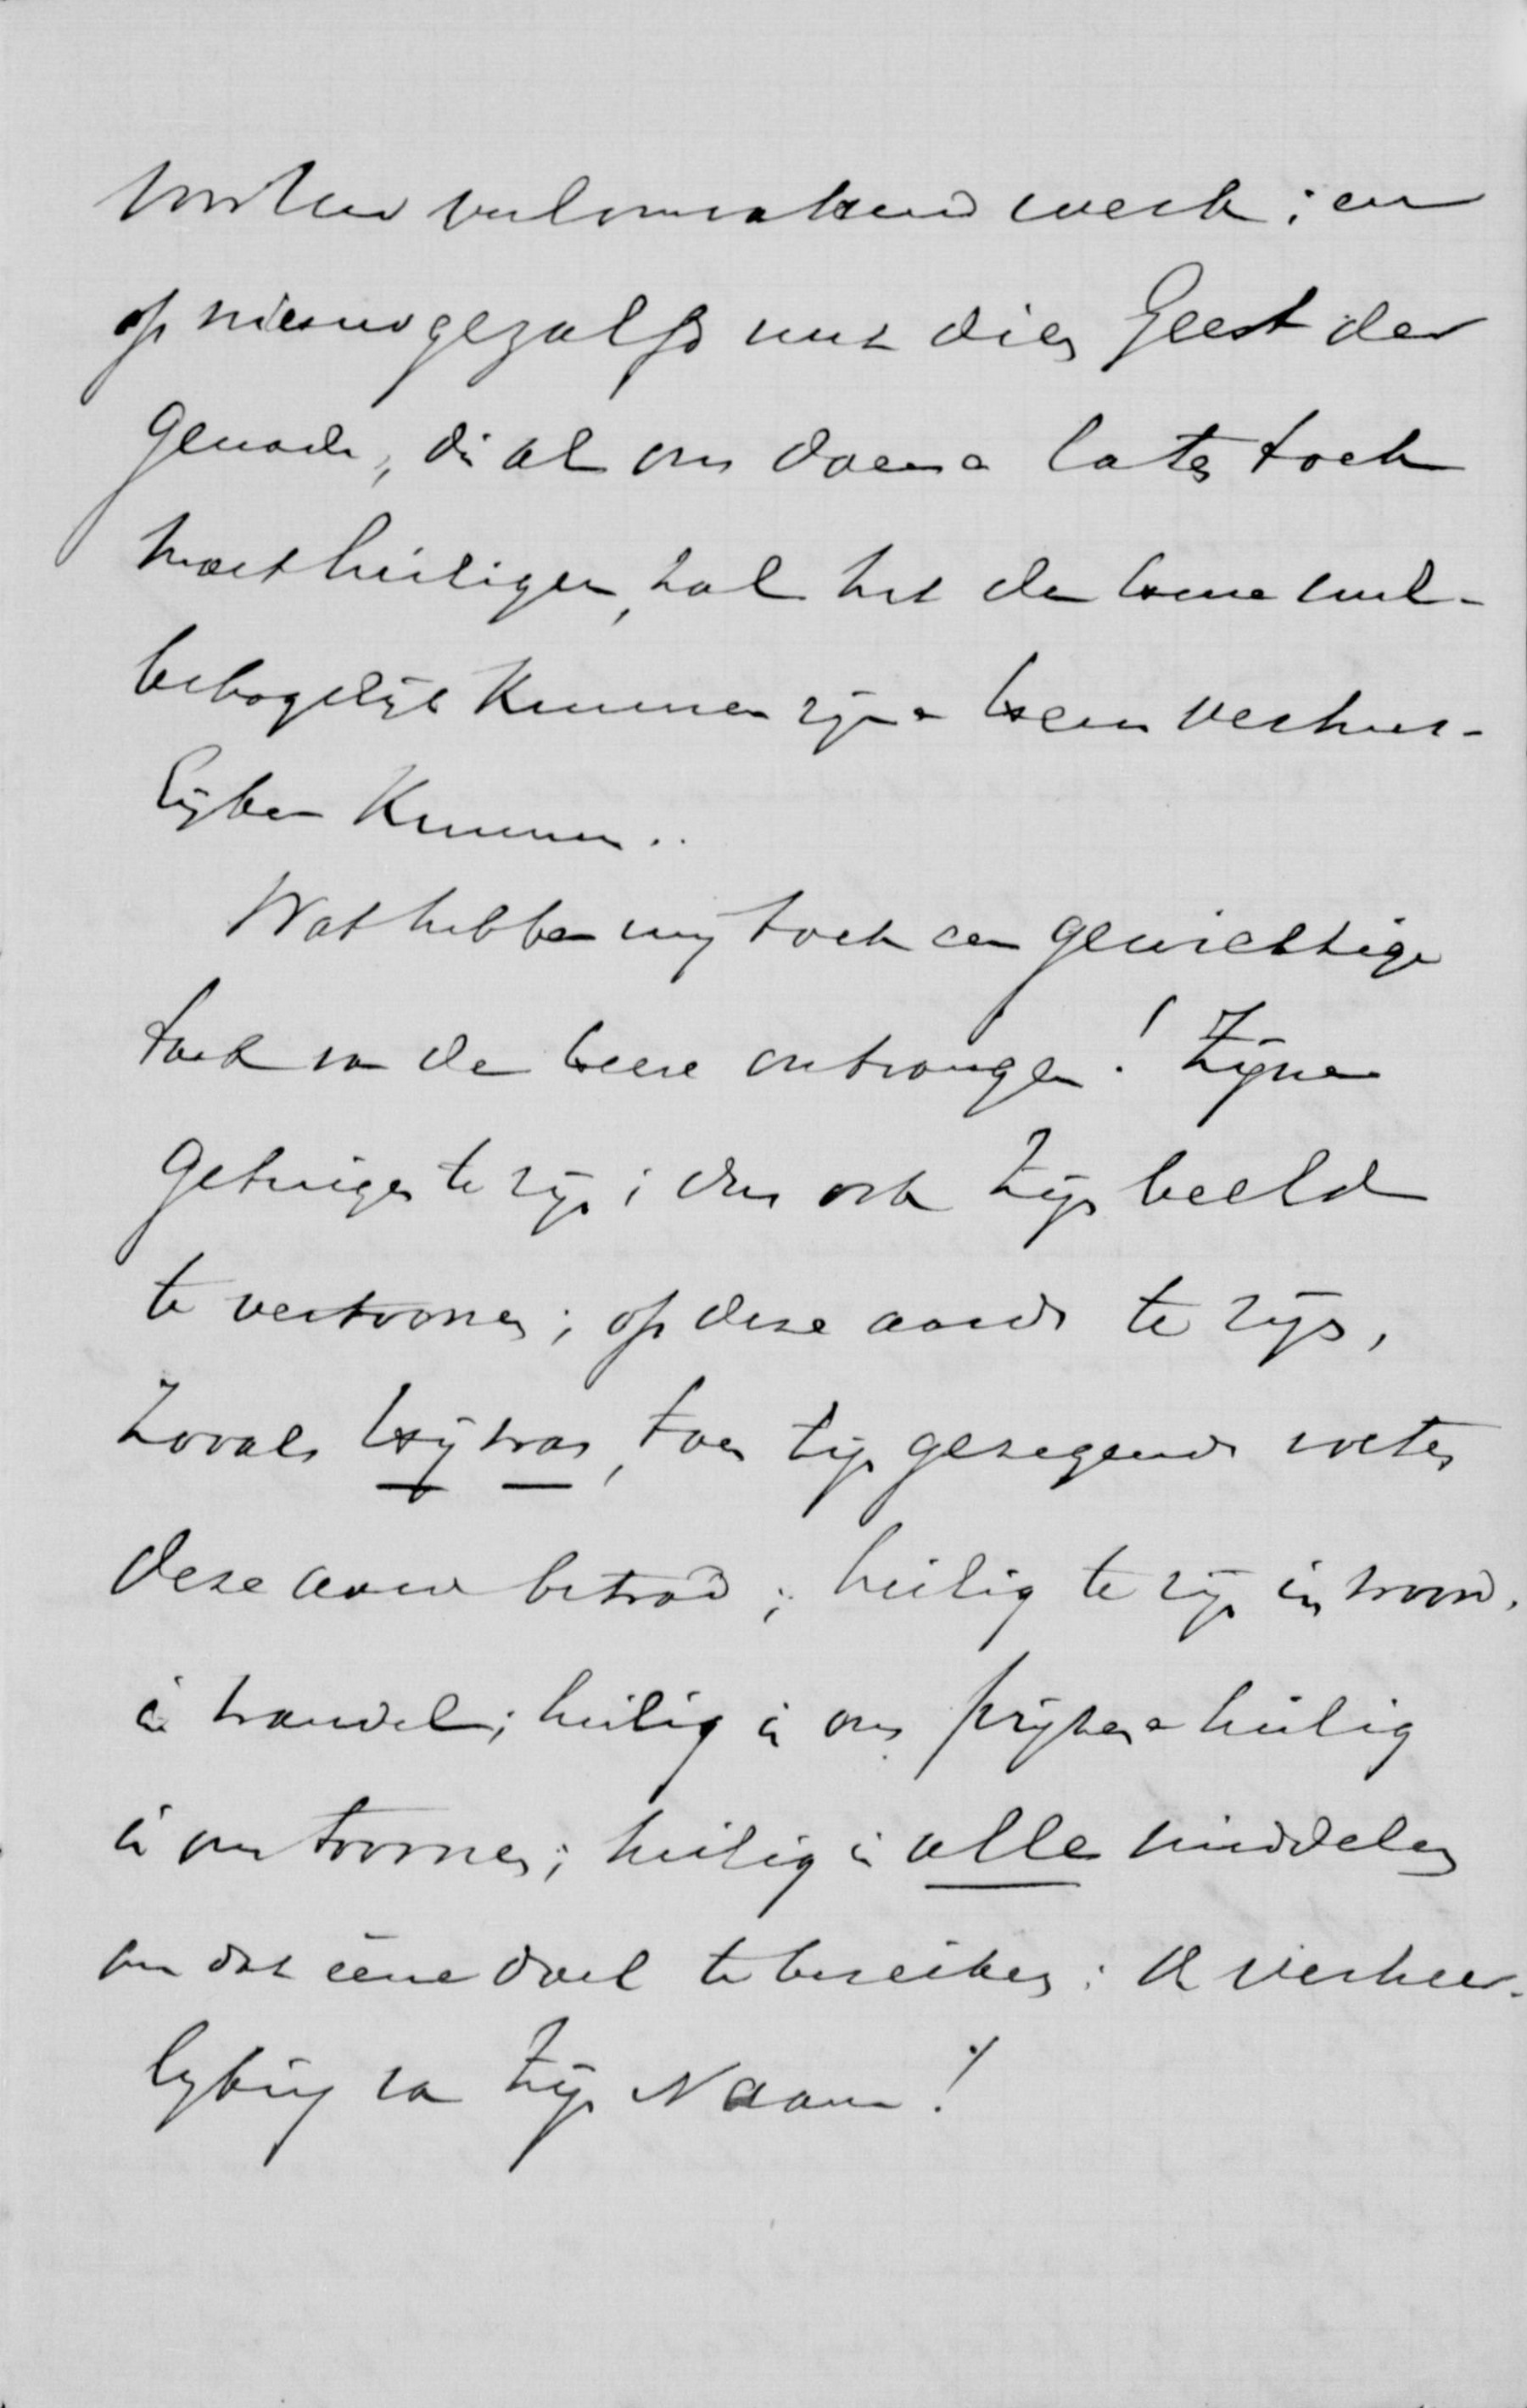 veelomvattend werk; en
op nieuw gezalfd met dien Geest der
genade, die al ons doen en laten toch
moet heiligen, zal het den Heere wel-
behagelijk kunnen zijn en Hem verheer-
lijken kunnen..
Wat hebben wij toch een gewichtige
taak van den Heere ontvangen! Zijne
getuigen te zijn; dus ook Zijn beeld
te vertoonen; op deze aarde te zijn,
zooals Hij was, toen Zijn gezegende voeten
deze aarde betrad; heilig te zijn in woord,
in wandel; heilig in ons prijzen en heilig
in ons toornen; heilig in alle middelen
om dat ééne doel te bereiken: de verheer-
lijking van Zijn Naam!